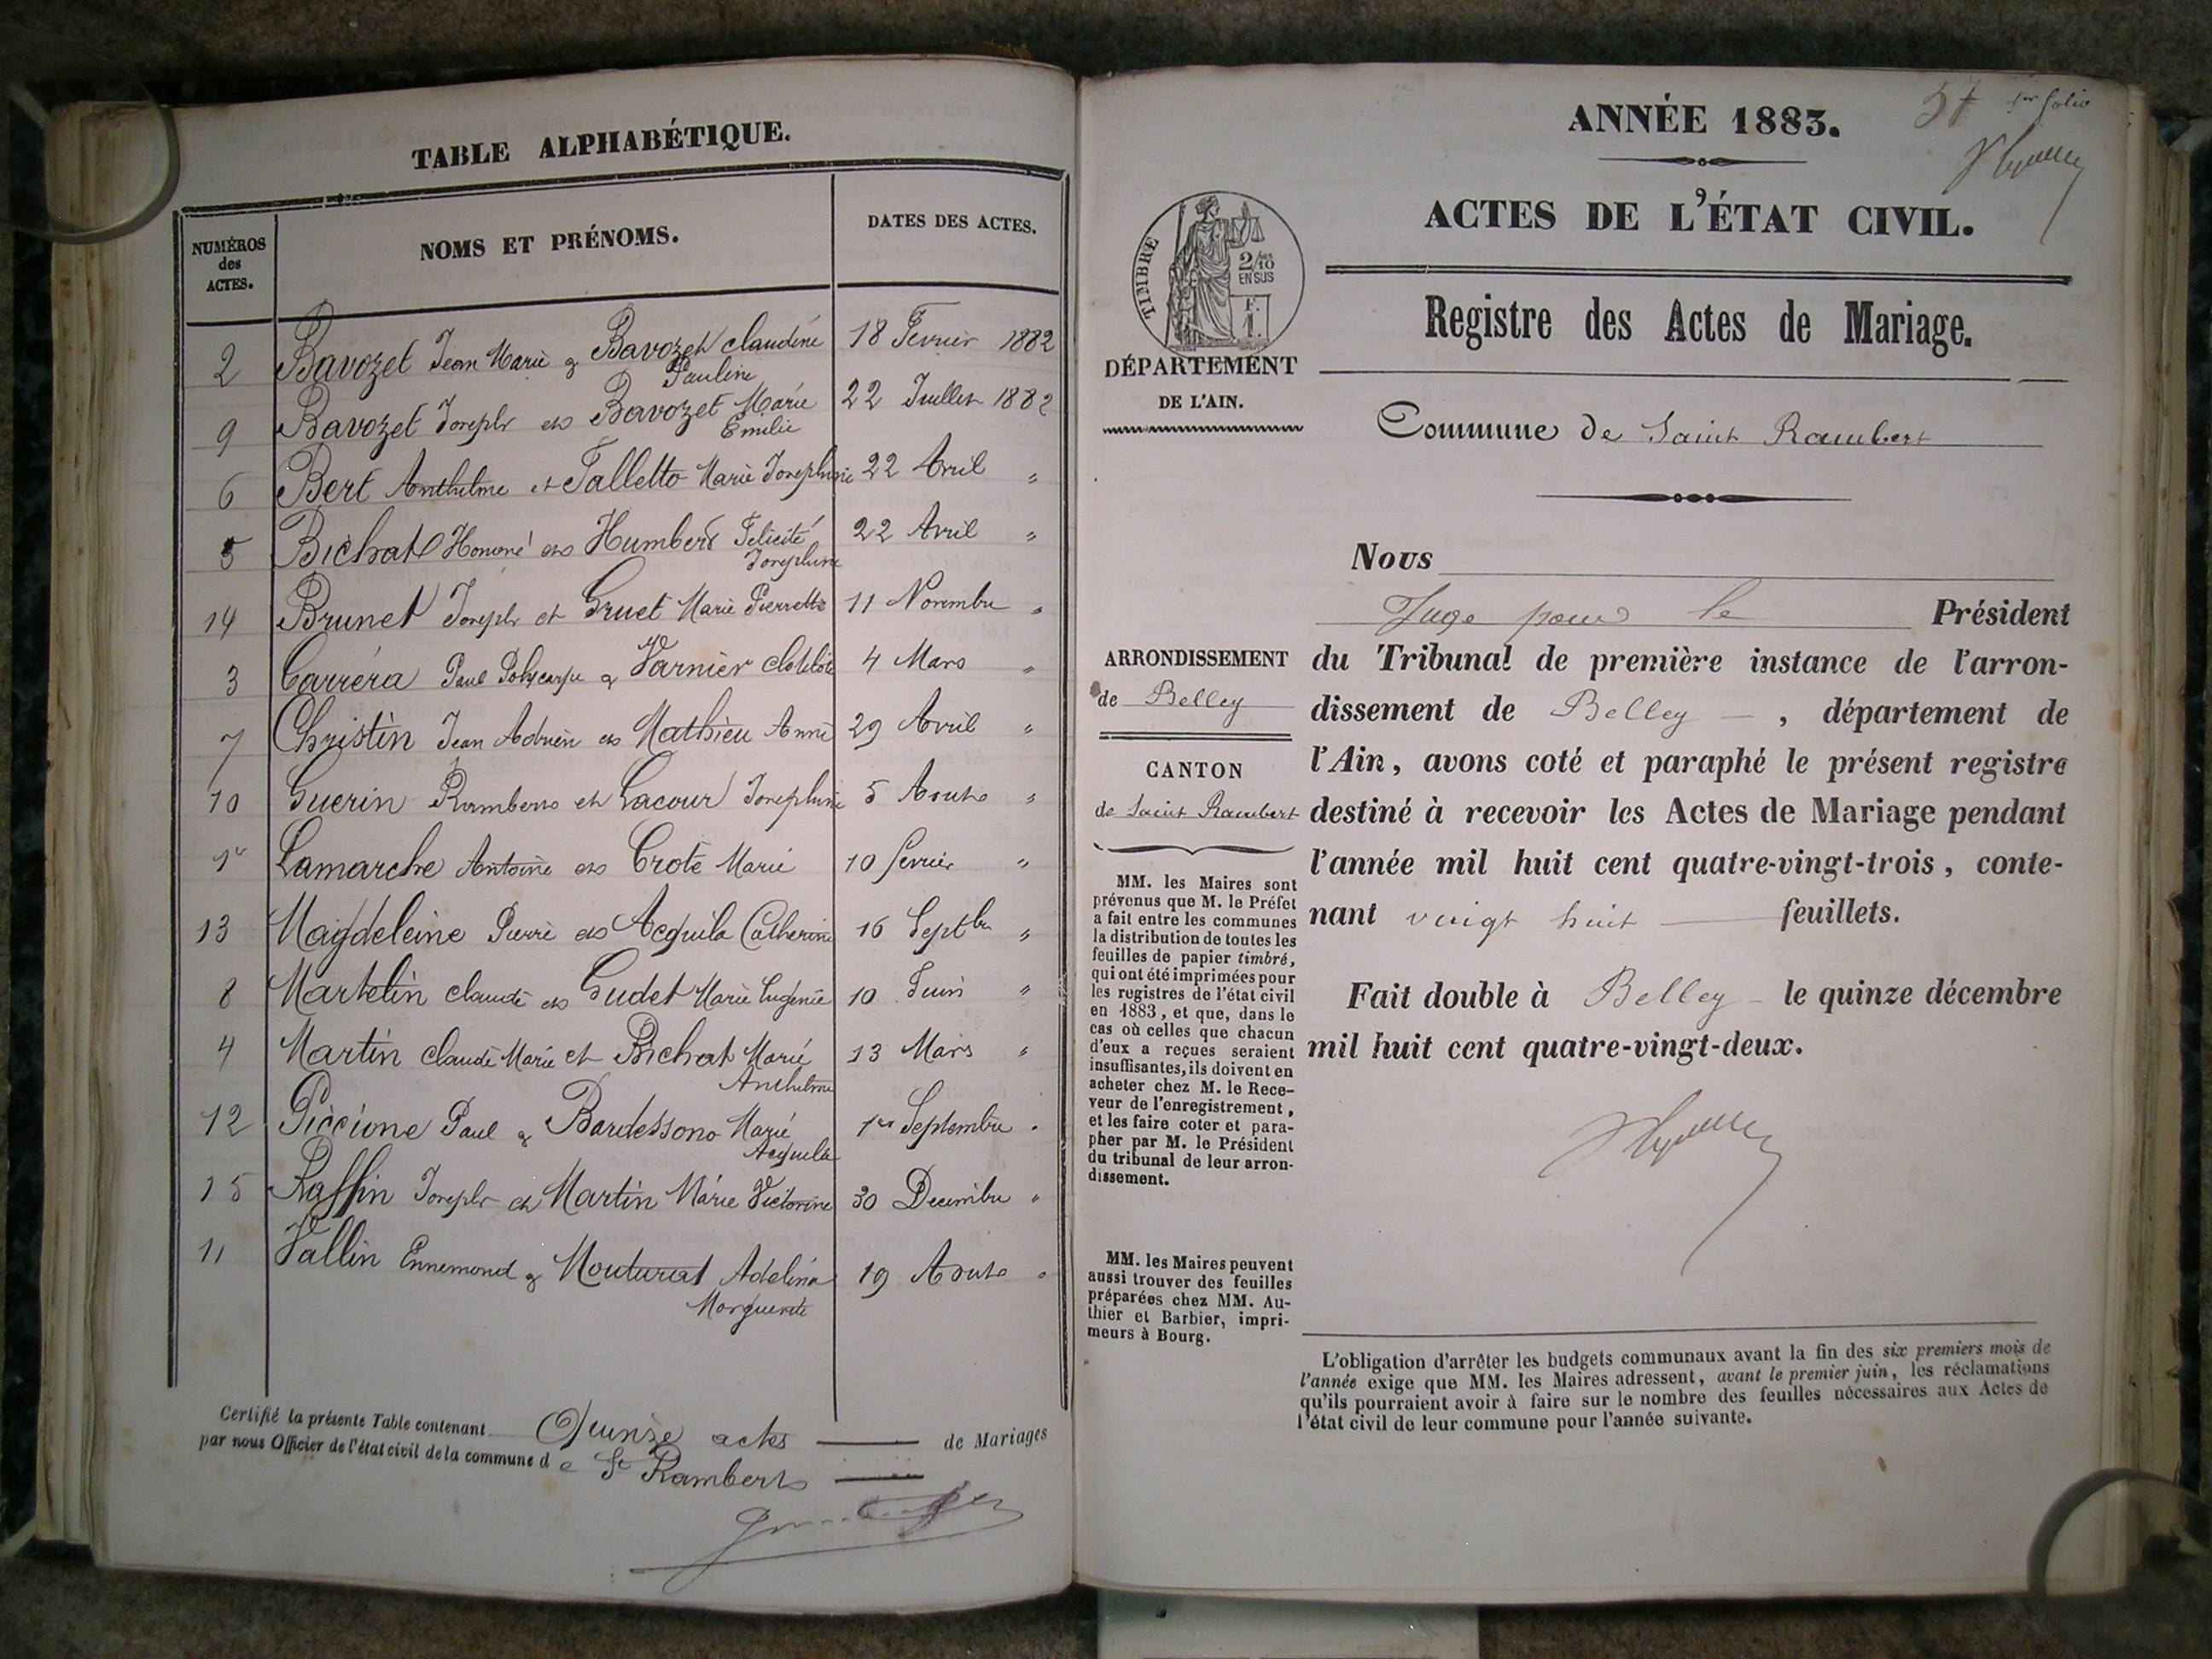 TABLE ALPHABÉTIQUE.
NUMÉROS des ACTES. NOMS ET PRÉNOMS. DATES DES ACTES.
2 Bavozet Jean Marie & Bavozet Claudine 18 Fevrier 1882
Pauline
9 Bavozet Joseph et Bavozet Marie 22 Juillet 1882
Emilie
6 Bert Anthelme et Talletto Marie Josephine 22 Avril "
5 Bichat Honoré et Humbert Felicité 22 Avril "
Josephine
14 Brunet Joseph et Gruet Marie Pierrette 11 Novembre "
3 Carréra Paul Polycarpe & Varnier Clotilde 4 Mars "
7 Christin Jean Adrien et Mathieu Anne 29 Avril "
10 Guerin Rambert et Lacour Josephine 5 Aout "
1er Lamarche Antoine et Crote Marie 10 fevrier "
13 Magdeleine Pierre et Acquila Catherine 16 Septbre "
8 Martelin Claude et Gudet Marie Eugenie 10 Juin "
4 Martin Claude Marie et Bichat Marie 13 Mars "
Anthelme
12 Piccione Paul & Bardessono Marie 1er Septembre "
Acquila
15 Raffin Joseph et Martin Marie Victorine 30 Decembre "
11 Vallin Ennemond & Mouturat Adelina 19 Aout "
Marguerite
Certifié la présente Table contenant Quinze actes de Mariages
par nous Officier de l'état civil de la commune d e St Rambert
57 1er folio
ANNÉE 1883.
ACTES DE L'ÉTAT CIVIL.
TIMBRE
2/10
EN SUS
F.
1.
Registre des Actes de Mariage.
DÉPARTEMENT
DE L'AIN.
Commune de Saint Rambert
Nous
Juge pour le Président
du Tribunal de première instance de l'arron-
dissement de Belley , département de
l'Ain, avons coté et paraphé le présent registre
destiné à recevoir les Actes de Mariage pendant
l'année mil huit cent quatre-vingt-trois, conte-
nant vingt huit feuillets.
Fait double à Belley le quinze décembre
mil huit cent quatre-vingt-deux.
ARRONDISSEMENT
de Belley
CANTON
de Saint Rambert
MM. les Maires sont
prévenus que M. le Préfet
a fait entre les communes
la distribution de toutes les
feuilles de papier timbré,
qui ont été imprimées pour
les registres de l'état civil
en 1883, et que, dans le
cas où celles que chacun
d'eux a reçues seraient
insuffisantes, ils doivent en
acheter chez M. le Rece-
veur de l'enregistrement,
et les faire coter et para-
pher par M. le Président
du tribunal de leur arron-
dissement.
MM. les Maires peuvent
aussi trouver des feuilles
préparées chez MM. Au-
thier et Barbier, impri-
meurs à Bourg.
L'obligation d'arrêter les budgets communaux avant la fin des six premiers mois de
l'année exige que MM. les Maires adressent, avant le premier juin, les réclamations
qu'ils pourraient avoir à faire sur le nombre des feuilles nécessaires aux Actes de
l'état civil de leur commune pour l'année suivante.